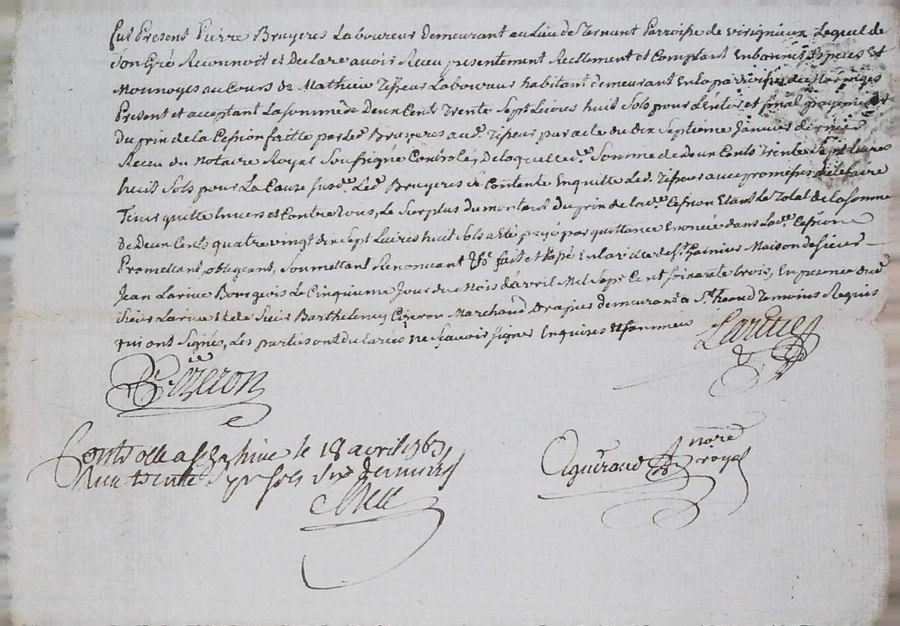 fut Present Pierre Bruyeres Laboureur demeurant au Lieu de Ternant Parroisse de virignieux Lequel de
son Gré Reconnoit et declare avoir Receu presentement Reellement et Comptant En bonnes Especes Et
Monnoyes au Cours de Mathieu Tisseur Laboureur habitant demeurant En la parroisse de
Present et acceptant La somme de Deux Cents Trente Sept Livres huit Sols pour L'entier et final payement
du prix de la Cession faitte par led. Bruyeres aud. Tisseur par acte du dix Septieme Janvier dernier
Receu du Notaire Royal Soussigné Controlés, De laquelle de. Somme de deux Cents Trente Sept Livres
huit Sols pour La Cause susd. Led. Bruyeres se Contente En quitte led. Tisseur avec promesses de le faire
Tenir quitte Envers et Contre tous, Le Surplus du montant du prix de lad. Cession Etant le Total de la somme
de Deux Cents quatre vingt dix Sept Livres huit Sols a Eté payé par quittance Enoncée dans Lad. Cession
Promettant, obligeant, Soumettant Renonceant fait et passé En la ville de St. Galmier Maison de Sieur
Jean Larive Bourgeois Le Cinquieme Jour du Mois d'avril Mil Sept Cent Soixante trois, En presence dud.
Sieur Larive et de Sieur Barthelemy Cozeron Marchand Drapier demeurant a St. heand Temoins Requis
qui ont Signés, Les parties ont declarées ne Scavoir signer Enquises et Sommées
Larive
Cozeron
Controllé a St. le 18 avril 1763
Reçu trente sols six deniers
Agniraud nore
royal